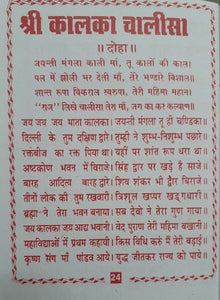 श्री कालका चालीसा
॥दोहा॥
जयन्ती मंगला काली माँ, तू कालों की काल।
पल में झोली भर देती माँ, तेरे भण्डारे विशाल॥
शान्त रूपा विकराल स्वरुपा, तेरी महिमा महान।
"राज" लिखे चालीसा तेरा माँ, जग का कर कल्याण॥
जय जय जय माता कालका। जयन्ती मंगला तू ही चण्डिका॥
दिल्ली के तुम दक्षिण द्वारे। तुम्ही ने शुम्भ-निशुम्भ पछाड़े॥
रक्तबीज का रक्त पिया था। यहाँ पर शांत रुप धरा था॥
अष्टकोण भवन में विराजे। सिंह द्वार पर खड़े है साजे॥
बारह आदित्य बारह द्वारे। शिव शंकर भी द्वैर बिराजे॥
तीनों लोक की तुम रखवारी। त्रिशूल खप्पर खड्गधारी॥
ब्रह्मा ने तेरा भवन बनाया। सब देवो ने तेरा गुण गाया॥
जय कालका जय आद्य भवानी। वेद पुराण तेरी महिमा बखानी॥
महाविद्याओं में प्रथम कहायी। किस विधि करुँ मैं तेरी बड़ाई॥
कृष्ण संग माँ पांडव आये। युद्ध जीतकर राज्य को पाये॥
24